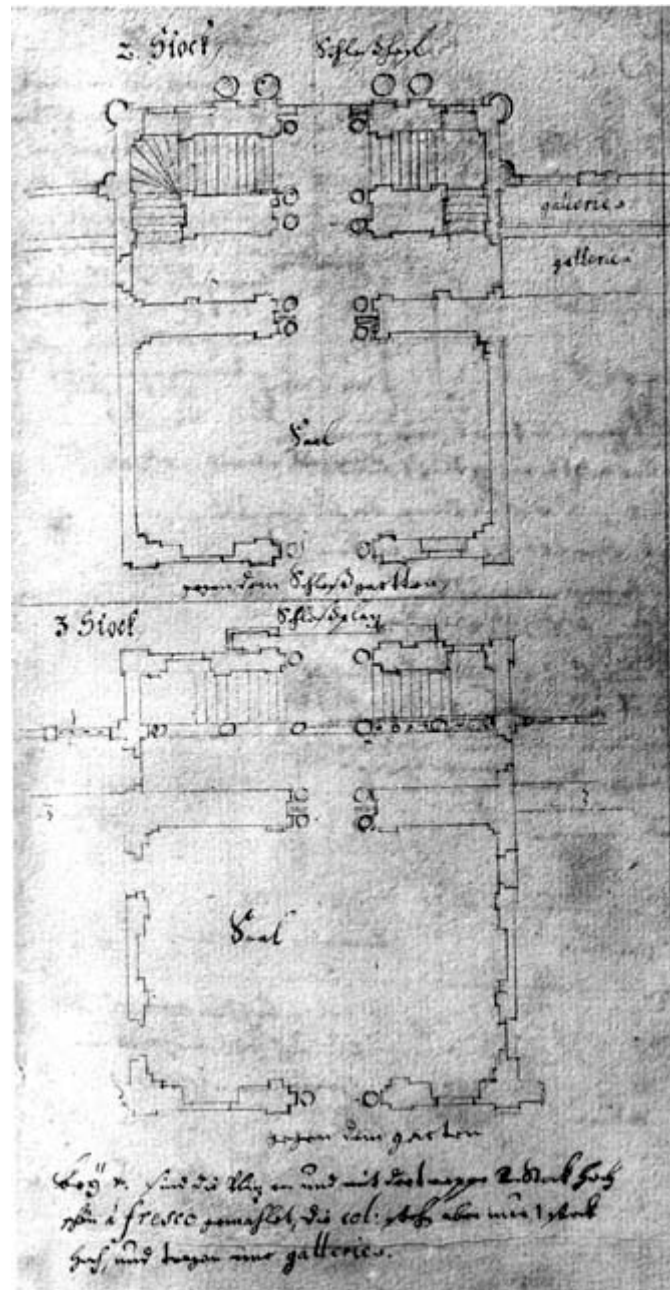 2. Stock
Schloßhoff
gallerie.
gallerie.
Saal
gegen dem Schloßgartten
3 Stock
Schloßplaz
3
3
Saal
gegen dem garten
bey sind die und mit 2. Stock hoch
schön à fresco gemahlet, die col: aber nur 1 stock
hoch, und tragen eine gallerie.